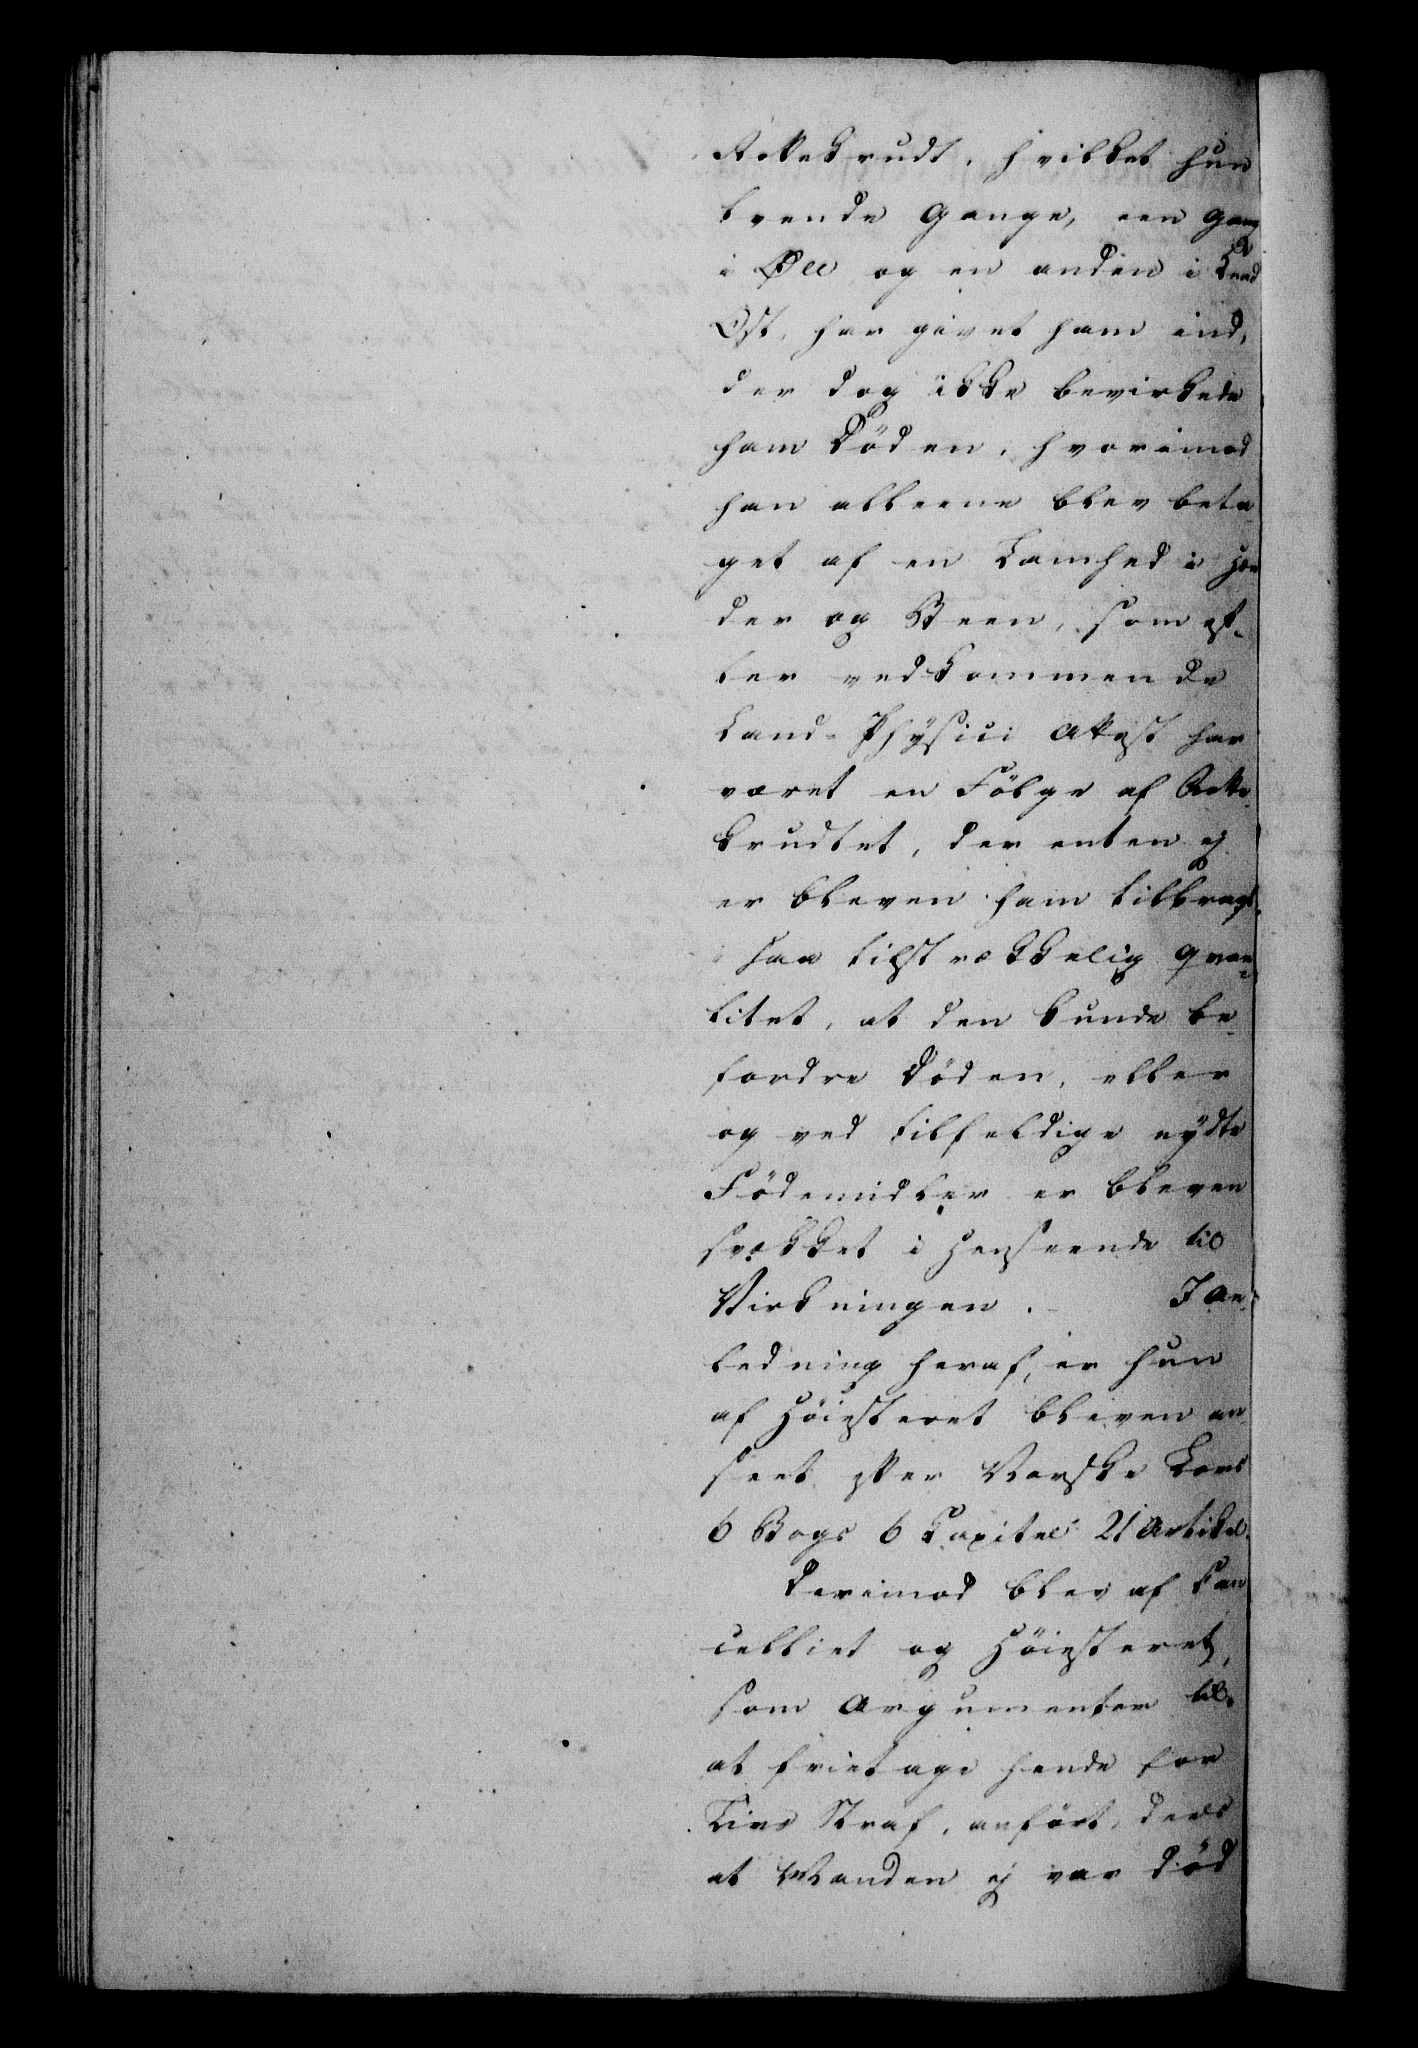 Rottekrudt, hvilket hun
tvende Gange, een Gang
i Øll og en anden i
Ost, har givet ham ind,
der dog ikke bevirkede
ham Döden, hvorimod
han alleene blev beta-
get af en Lamhed i Hæn
der og Been, som ef-
ter vedkommende
Land-Physici Attest har
været en Fölge af Rotte-
krudtet, der enten ej
er bleven ham tilbragt
i saa tilstrækkelig Qvan-
titet, at den kunde be-
fordre Döden, eller
og ved tilfeldige nydte
Födemidler er bleven
svækket i Henseende til
Virkningen. - I An-
ledning heraf, er hun
af Höiesteret bleven an-
seet efter Norske Lovs
6 Bogs 6 Capitel 21 Artikel.
Derimod blev af Can
celliet og Höiesteret,
som Argumenter til
at fritage hende for
Livs Straf, anfört, deels
at Manden ej var död